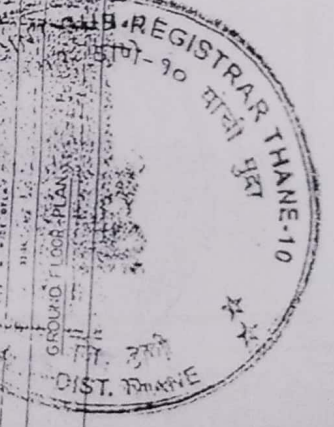 SUB-REGISTRAR THANE-10
ठाणे-१० यांची मुद्रा
GROUND FLOOR PLAN
जि. ठाणे
DIST. THANE